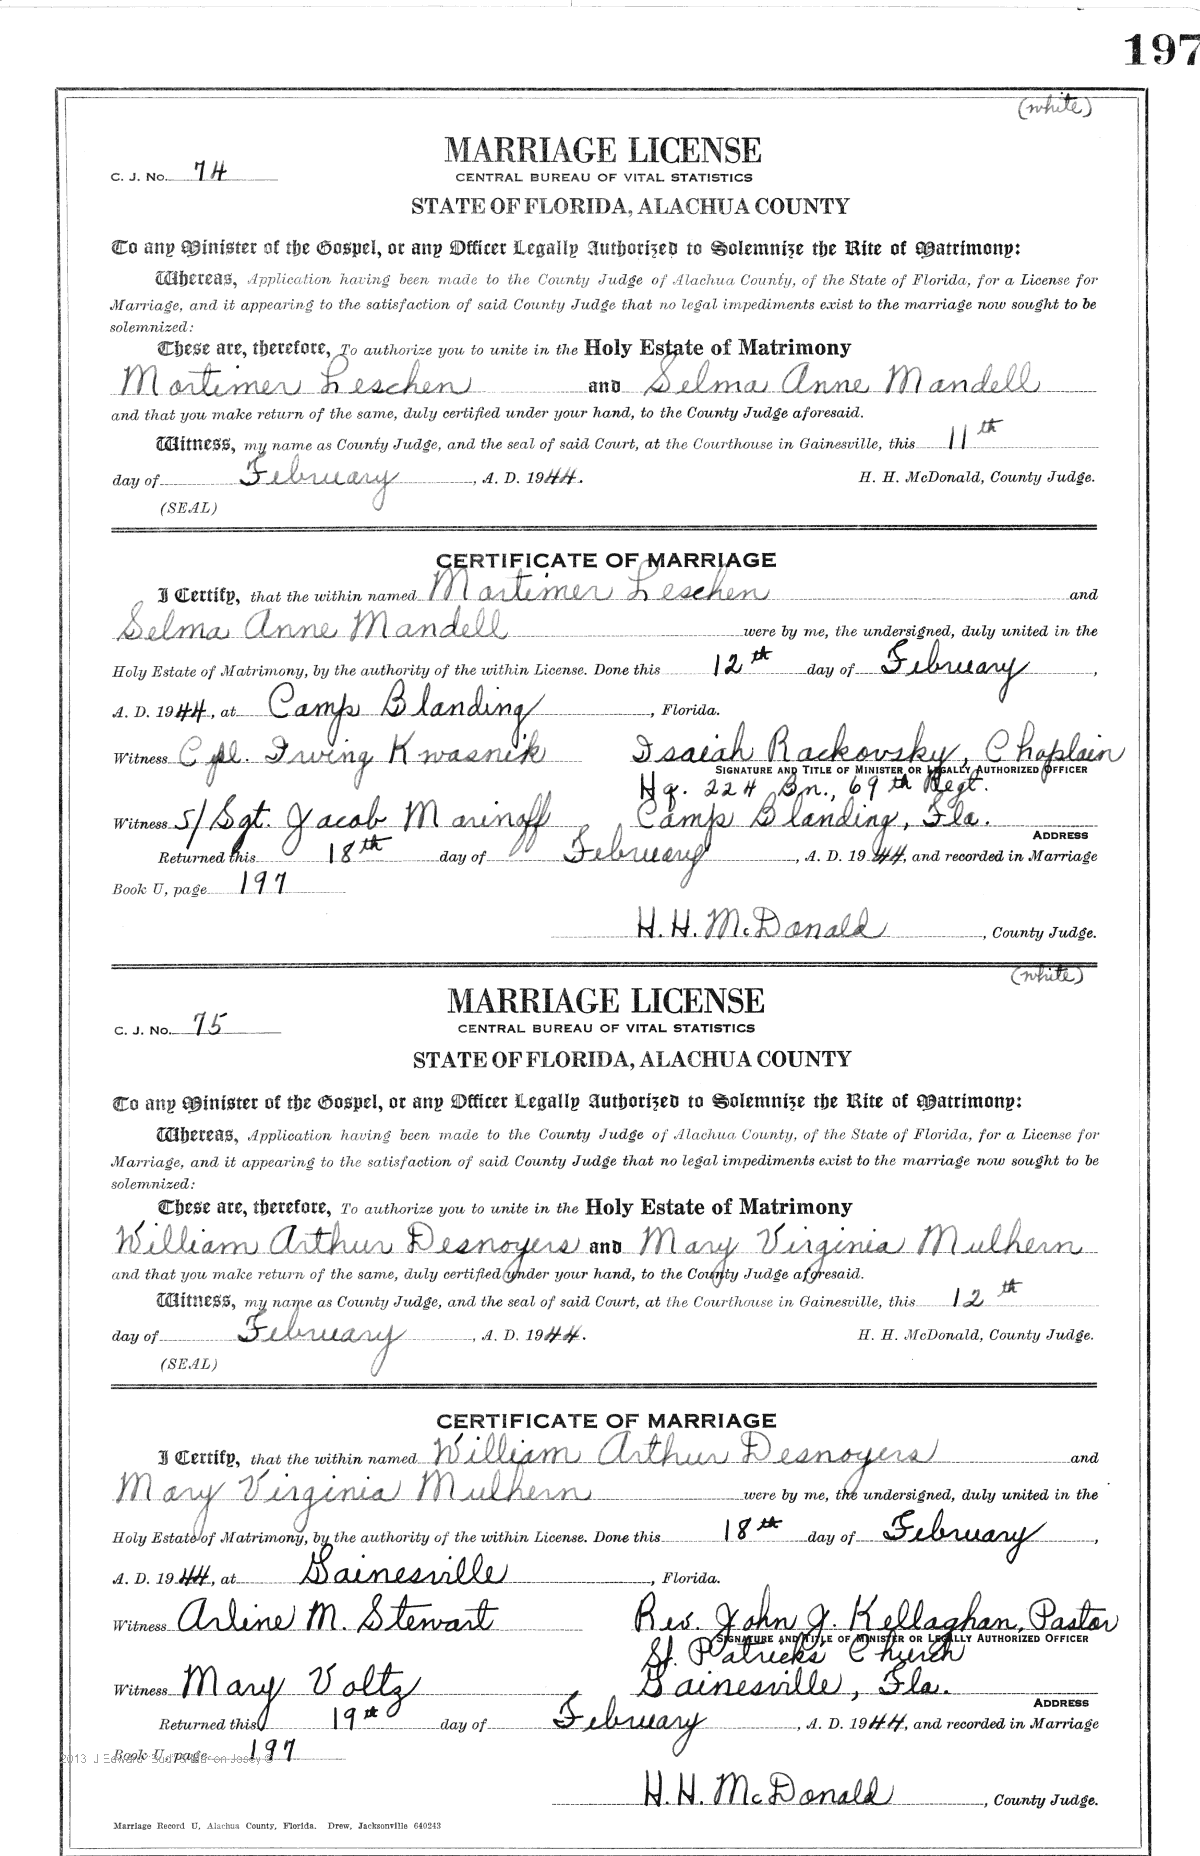 197
(white)
MARRIAGE LICENSE
C. J. No. 74
CENTRAL BUREAU OF VITAL STATISTICS
STATE OF FLORIDA, ALACHUA COUNTY
To any Minister of the Gospel, or any Officer Legally Authorized to Solemnize the Rite of Matrimony:
Whereas, Application having been made to the County Judge of Alachua County, of the State of Florida, for a License for
Marriage, and it appearing to the satisfaction of said County Judge that no legal impediments exist to the marriage now sought to be
solemnized:
These are, therefore, To authorize you to unite in the Holy Estate of Matrimony
Mortimer Leschen and Selma Anne Mandell
and that you make return of the same, duly certified under your hand, to the County Judge aforesaid.
Witness, my name as County Judge, and the seal of said Court, at the Courthouse in Gainesville, this 11th
day of February, A. D. 1944. H. H. McDonald, County Judge.
(SEAL)
CERTIFICATE OF MARRIAGE
I Certify, that the within named Mortimer Leschen and
Selma Anne Mandell were by me, the undersigned, duly united in the
Holy Estate of Matrimony, by the authority of the within License. Done this 12th day of February,
A. D. 1944, at Camp Blanding, Florida.
Witness Cpl. Irving Kwasnik Isaiah Rackovsky, Chaplain
SIGNATURE AND TITLE OF MINISTER OR LEGALLY AUTHORIZED OFFICER
Hq. 224 Bn., 69th Regt.
Witness S/Sgt. Jacob Marinoff Camp Blanding, Fla.
ADDRESS
Returned this 18th day of February, A. D. 1944, and recorded in Marriage
Book U, page 197
H. H. McDonald, County Judge.
(white)
MARRIAGE LICENSE
C. J. No. 75
CENTRAL BUREAU OF VITAL STATISTICS
STATE OF FLORIDA, ALACHUA COUNTY
To any Minister of the Gospel, or any Officer Legally Authorized to Solemnize the Rite of Matrimony:
Whereas, Application having been made to the County Judge of Alachua County, of the State of Florida, for a License for
Marriage, and it appearing to the satisfaction of said County Judge that no legal impediments exist to the marriage now sought to be
solemnized:
These are, therefore, To authorize you to unite in the Holy Estate of Matrimony
William Arthur Desnoyers and Mary Virginia Mulhern
and that you make return of the same, duly certified under your hand, to the County Judge aforesaid.
Witness, my name as County Judge, and the seal of said Court, at the Courthouse in Gainesville, this 12th
day of February, A. D. 1944. H. H. McDonald, County Judge.
(SEAL)
CERTIFICATE OF MARRIAGE
I Certify, that the within named William Arthur Desnoyers and
Mary Virginia Mulhern were by me, the undersigned, duly united in the
Holy Estate of Matrimony, by the authority of the within License. Done this 18th day of February,
A. D. 1944, at Gainesville, Florida.
Witness Arline M. Stewart Rev. John J. Kellaghan, Pastor
SIGNATURE AND TITLE OF MINISTER OR LEGALLY AUTHORIZED OFFICER
St. Patricks Church
Witness Mary Voltz Gainesville, Fla.
ADDRESS
Returned this 19th day of February, A. D. 1944, and recorded in Marriage
Book U, page 197
2013 J Edward
H. H. McDonald, County Judge.
Marriage Record U, Alachua County, Florida. Drew, Jacksonville 640243